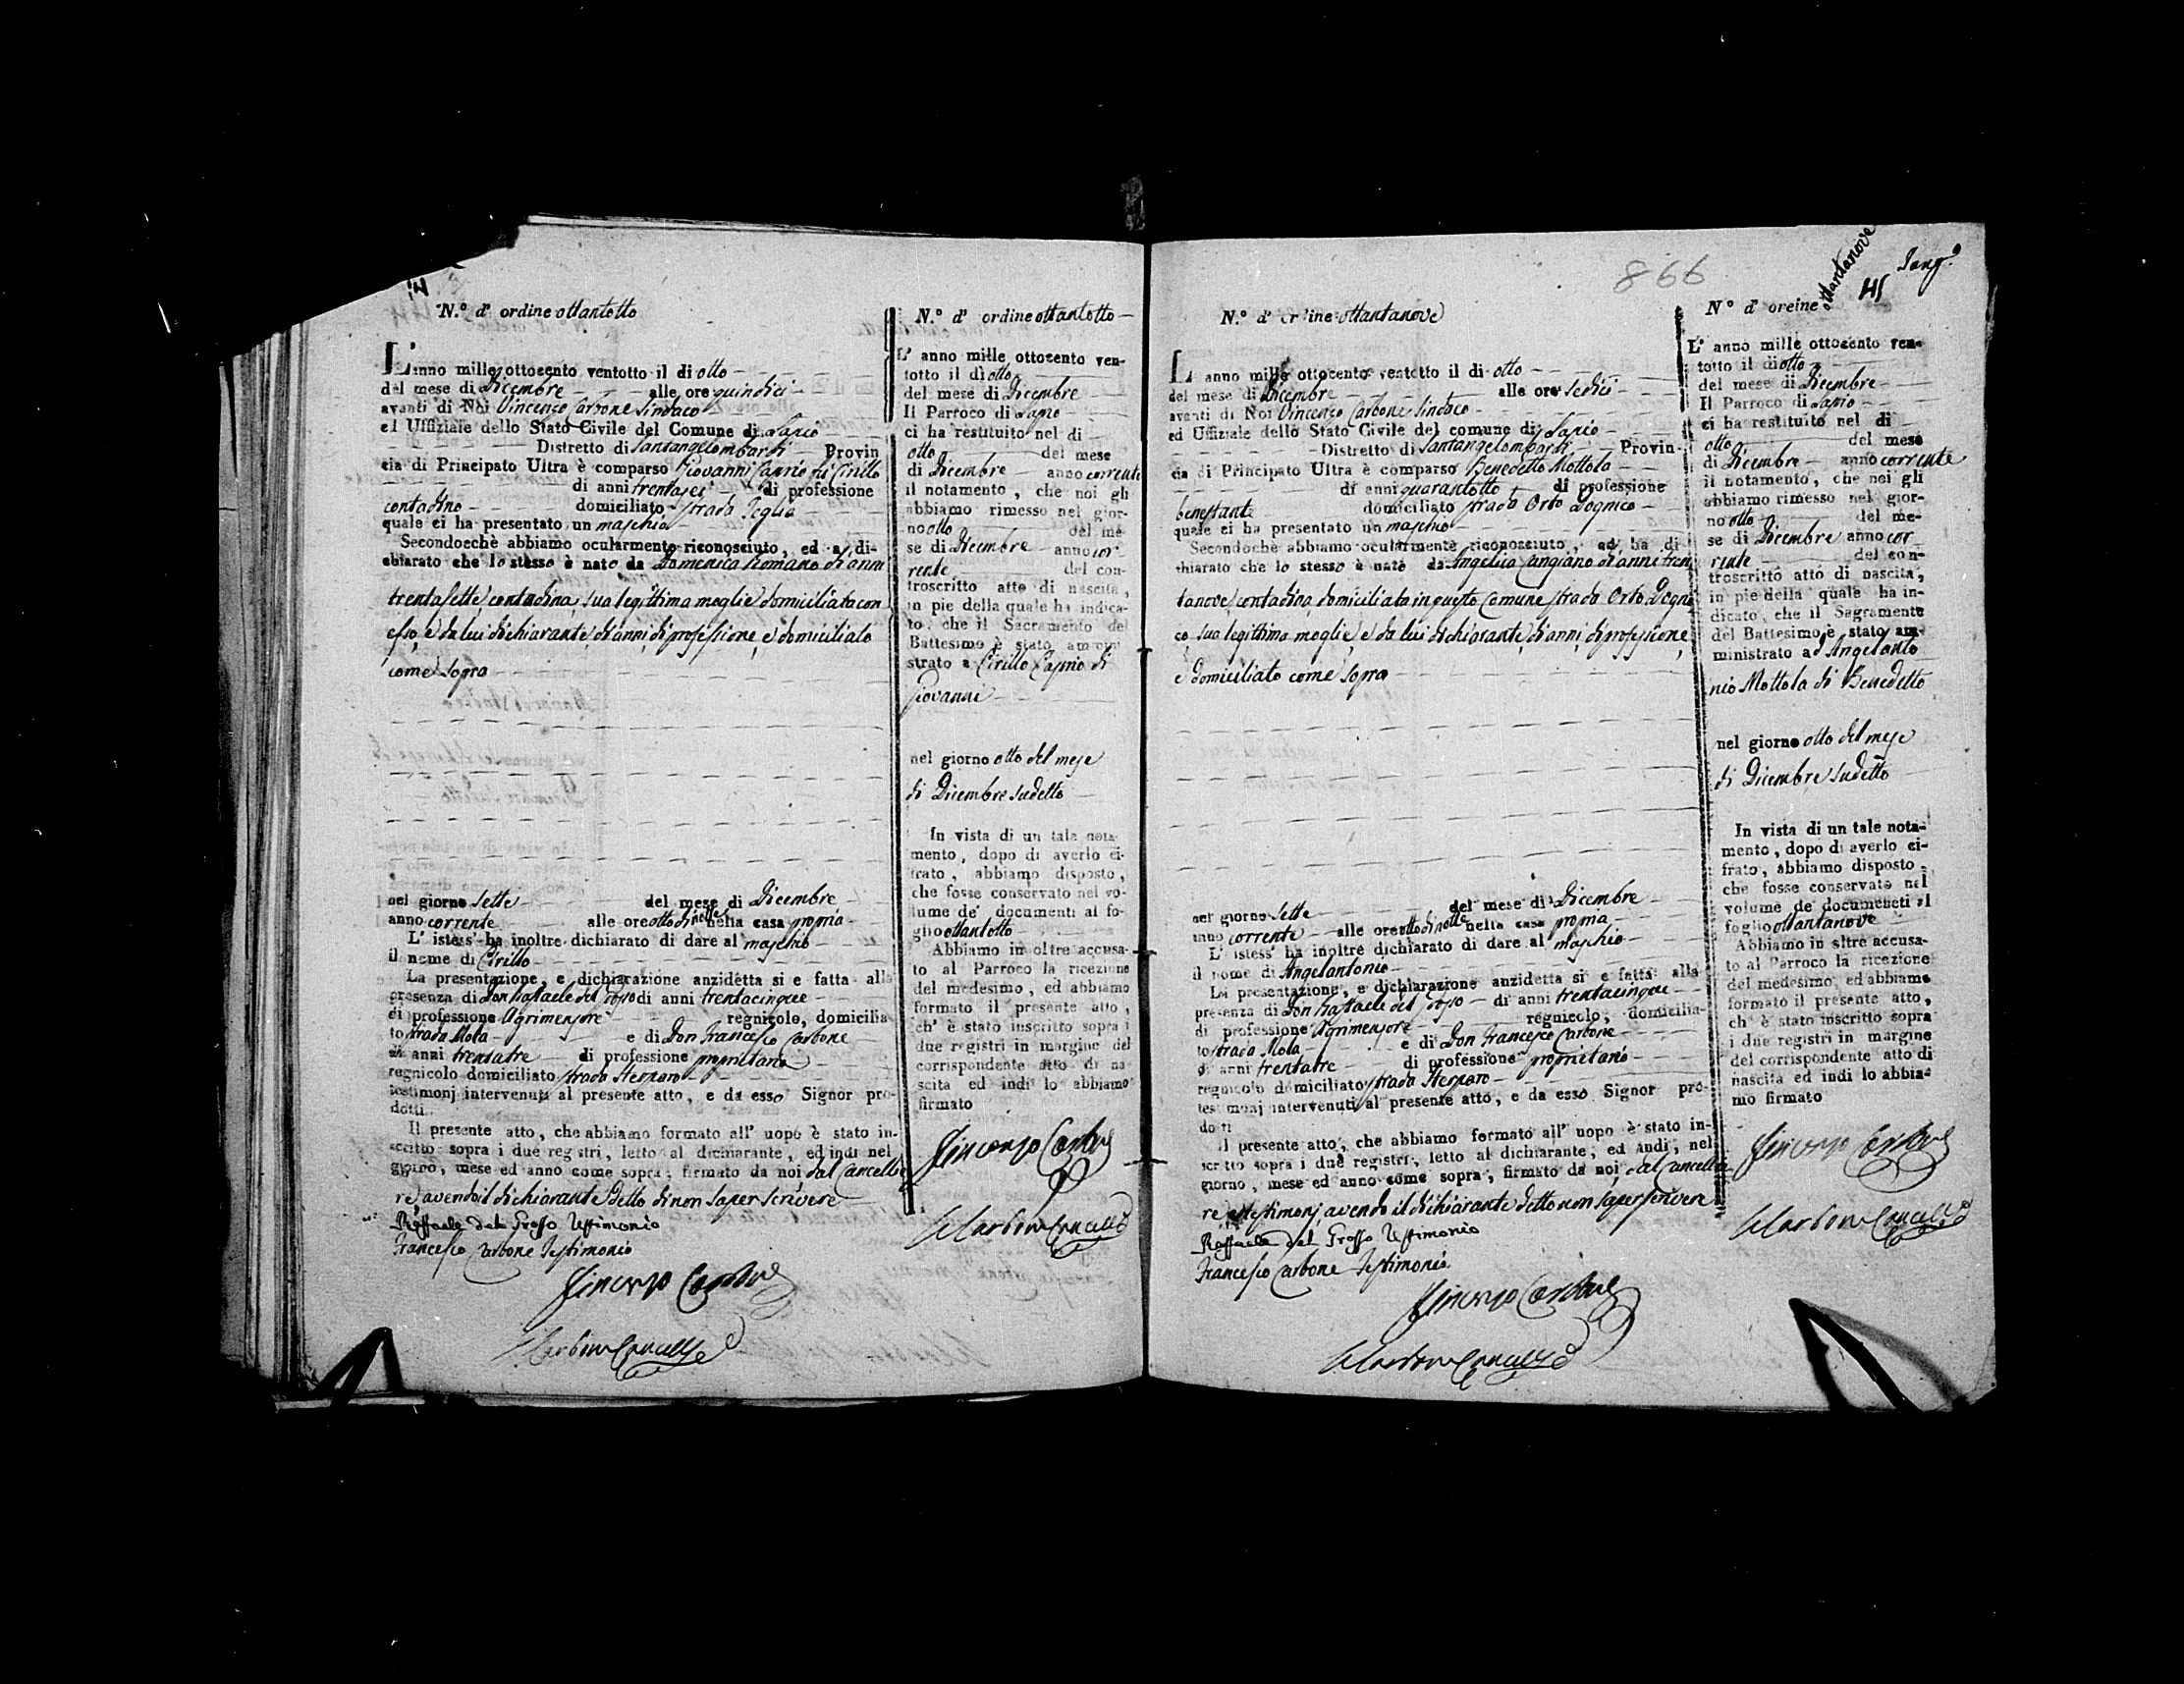 N.° d' ordine ottantotto
L' anno mille ottocento ventotto il di otto
del mese di Dicembre alle ore quindici
avanti di Noi Vincenzo Carbone Sindaco
ed Uffiziale dello Stato Civile del Comune di Lapio
Distretto di Santangelombardi Provin
cia di Principato Ultra è comparso Giovanni Caprio di Cirillo
di anni trentasei di professione
contadino domiciliato strada
quale ci ha presentato un maschio
Secondocchè abbiamo ocularmente riconosciuto, ed a di-
chiarato che lo stesso è nato da Domenica Romano di anni
trentasette, contadina, sua legittima moglie domiciliata con
esso, e da lui dichiarante, di anni, di professione, e domiciliato
come sopra
nel giorno sette del mese di Dicembre
anno corrente alle ore otto di notte nella casa propria
L' istess' ha inoltre dichiarato di dare al maschio
il nome di Cirillo
La presentazione, e dichiarazione anzidetta si e fatta alla
presenza di Don Raffaele del Grosso di anni trentacinque
di professione Agrimensore regnicolo, domicilia
to strada Mola e di Don Francesco Carbone
di anni trentatre di professione proprietario
regnicolo domiciliato strada Sterparo
testimonj intervenuti al presente atto, e da esso Signor pro-
dotti.
Il presente atto, che abbiamo formato all' uopo è stato in-
scritto sopra i due registri, letto al dichiarante, ed indi nel
giorno, mese ed anno come sopra, firmato da noi dal Cancellie
re, avendo il dichiarante detto di non saper scrivere
Raffaele del Grosso Testimonio
Francesco Carbone Testimonio
Vincenzo Carbone
Carbone Cancelliere
N.° d' ordine ottantotto
L' anno mille ottocento ven-
totto il dì otto
del mese di Dicembre
Il Parroco di Lapio
ci ha restituito nel di
otto del mese
di Dicembre anno corrente
il notamento, che noi gli
abbiamo rimesso nel gior-
no otto del me-
se di Dicembre anno cor
rente del con-
troscritto atto di nascita,
in pie della quale ha indica-
to, che il Sacramento del
Battesimo è stato ammini
strato a Cirillo Caprio di
Giovanni
nel giorno otto del mese
di Dicembre sudetto
In vista di un tale nota-
mento, dopo di averlo ci-
frato, abbiamo disposto,
che fosse conservato nel vo-
lume de' documenti al fo-
glio ottantotto
Abbiamo in oltre accusa-
to al Parroco la ricezione
del medesimo, ed abbiamo
formato il presente atto,
ch' è stato inscritto sopra i
due registri in margine del
corrispondente atto di na-
scita ed indi lo abbiamo
firmato
Vincenzo Carbone
Carbone Cancelliere
866
N.° d' ordine ottantanove
L' anno mille ottocento ventotto il di otto
del mese di Dicembre alle ore sedici
avanti di Noi Vincenzo Carbone Sindaco
ed Uffiziale dello Stato Civile del comune di Lapio
Distretto di Santangelombardi Provin-
cia di Principato Ultra è comparso Benedetto Mottola
di anni quarantotto di professione
benestante domiciliato strada Orto Dognico
quale ci ha presentato un maschio
Secondochè abbiamo ocularmente riconosciuto, ed ha di
chiarato che lo stesso è nato da Angelica Cangiano di anni tren
tanove, contadina, domiciliata in questo Comune strada Orto Dogni
co, sua legittima moglie, e da lui dichiarante, di anni, di professione,
e domiciliato come sopra
nel giorno sette del mese di Dicembre
anno corrente alle ore otto di notte nella casa propria
L' istess' ha inoltre dichiarato di dare al maschio
il nome di Angelantonio
La presentazione, e dichiarazione anzidetta si e fatta alla
presenza di Don Raffaele del Grosso di anni trentacinque
di professione Agrimensore regnicolo, domicilia-
to strada Mola e di Don Francesco Carbone
di anni trentatre di professione proprietario
regnicolo domiciliato strada Sterparo
testimonj intervenuti al presente atto, e da esso Signor pro-
dotti
Il presente atto, che abbiamo formato all' uopo è stato in-
scritto sopra i due registri, letto al dichiarante, ed andi, nel
giorno, mese ed anno come sopra, firmato da noi, dal Cancellie
re, e testimonj avendo il dichiarante detto non saper scrivere
Raffaele del Grosso Testimonio
Francesco Carbone Testimonio
Vincenzo Carbone
Carbone Cancelliere
N° d' oreine ottantanove
L' anno mille ottocento ven-
totto il di otto
del mese di Dicembre
Il Parroco di Lapio
ci ha restituito nel di
otto del mese
di Dicembre anno corrente
il notamento, che noi gli
abbiamo rimesso nel gior-
no otto del me-
se di Dicembre anno cor
rente del con-
troscritto atto di nascita,
in pie della quale ha in-
dicato, che il Sagramento
del Battesimo è stato am-
ministrato ad Angelanto
nio Mottola di Benedetto
nel giorno otto del mese
di Dicembre sudetto
In vista di un tale nota-
mento, dopo di averlo ci-
frato, abbiamo disposto,
che fosse conservato nel
volume de documeneti al
foglio ottantanove
Abbiamo in oltre accusa-
to al Parroco la ricezione
del medesimo, ed abbiamo
formato il presente atto,
ch' è stato inscritto sopra
i due registri in margine
del corrispondente atto di
nascita ed indi lo abbia-
mo firmato
Vincenzo Carbone
Carbone Cancelliere